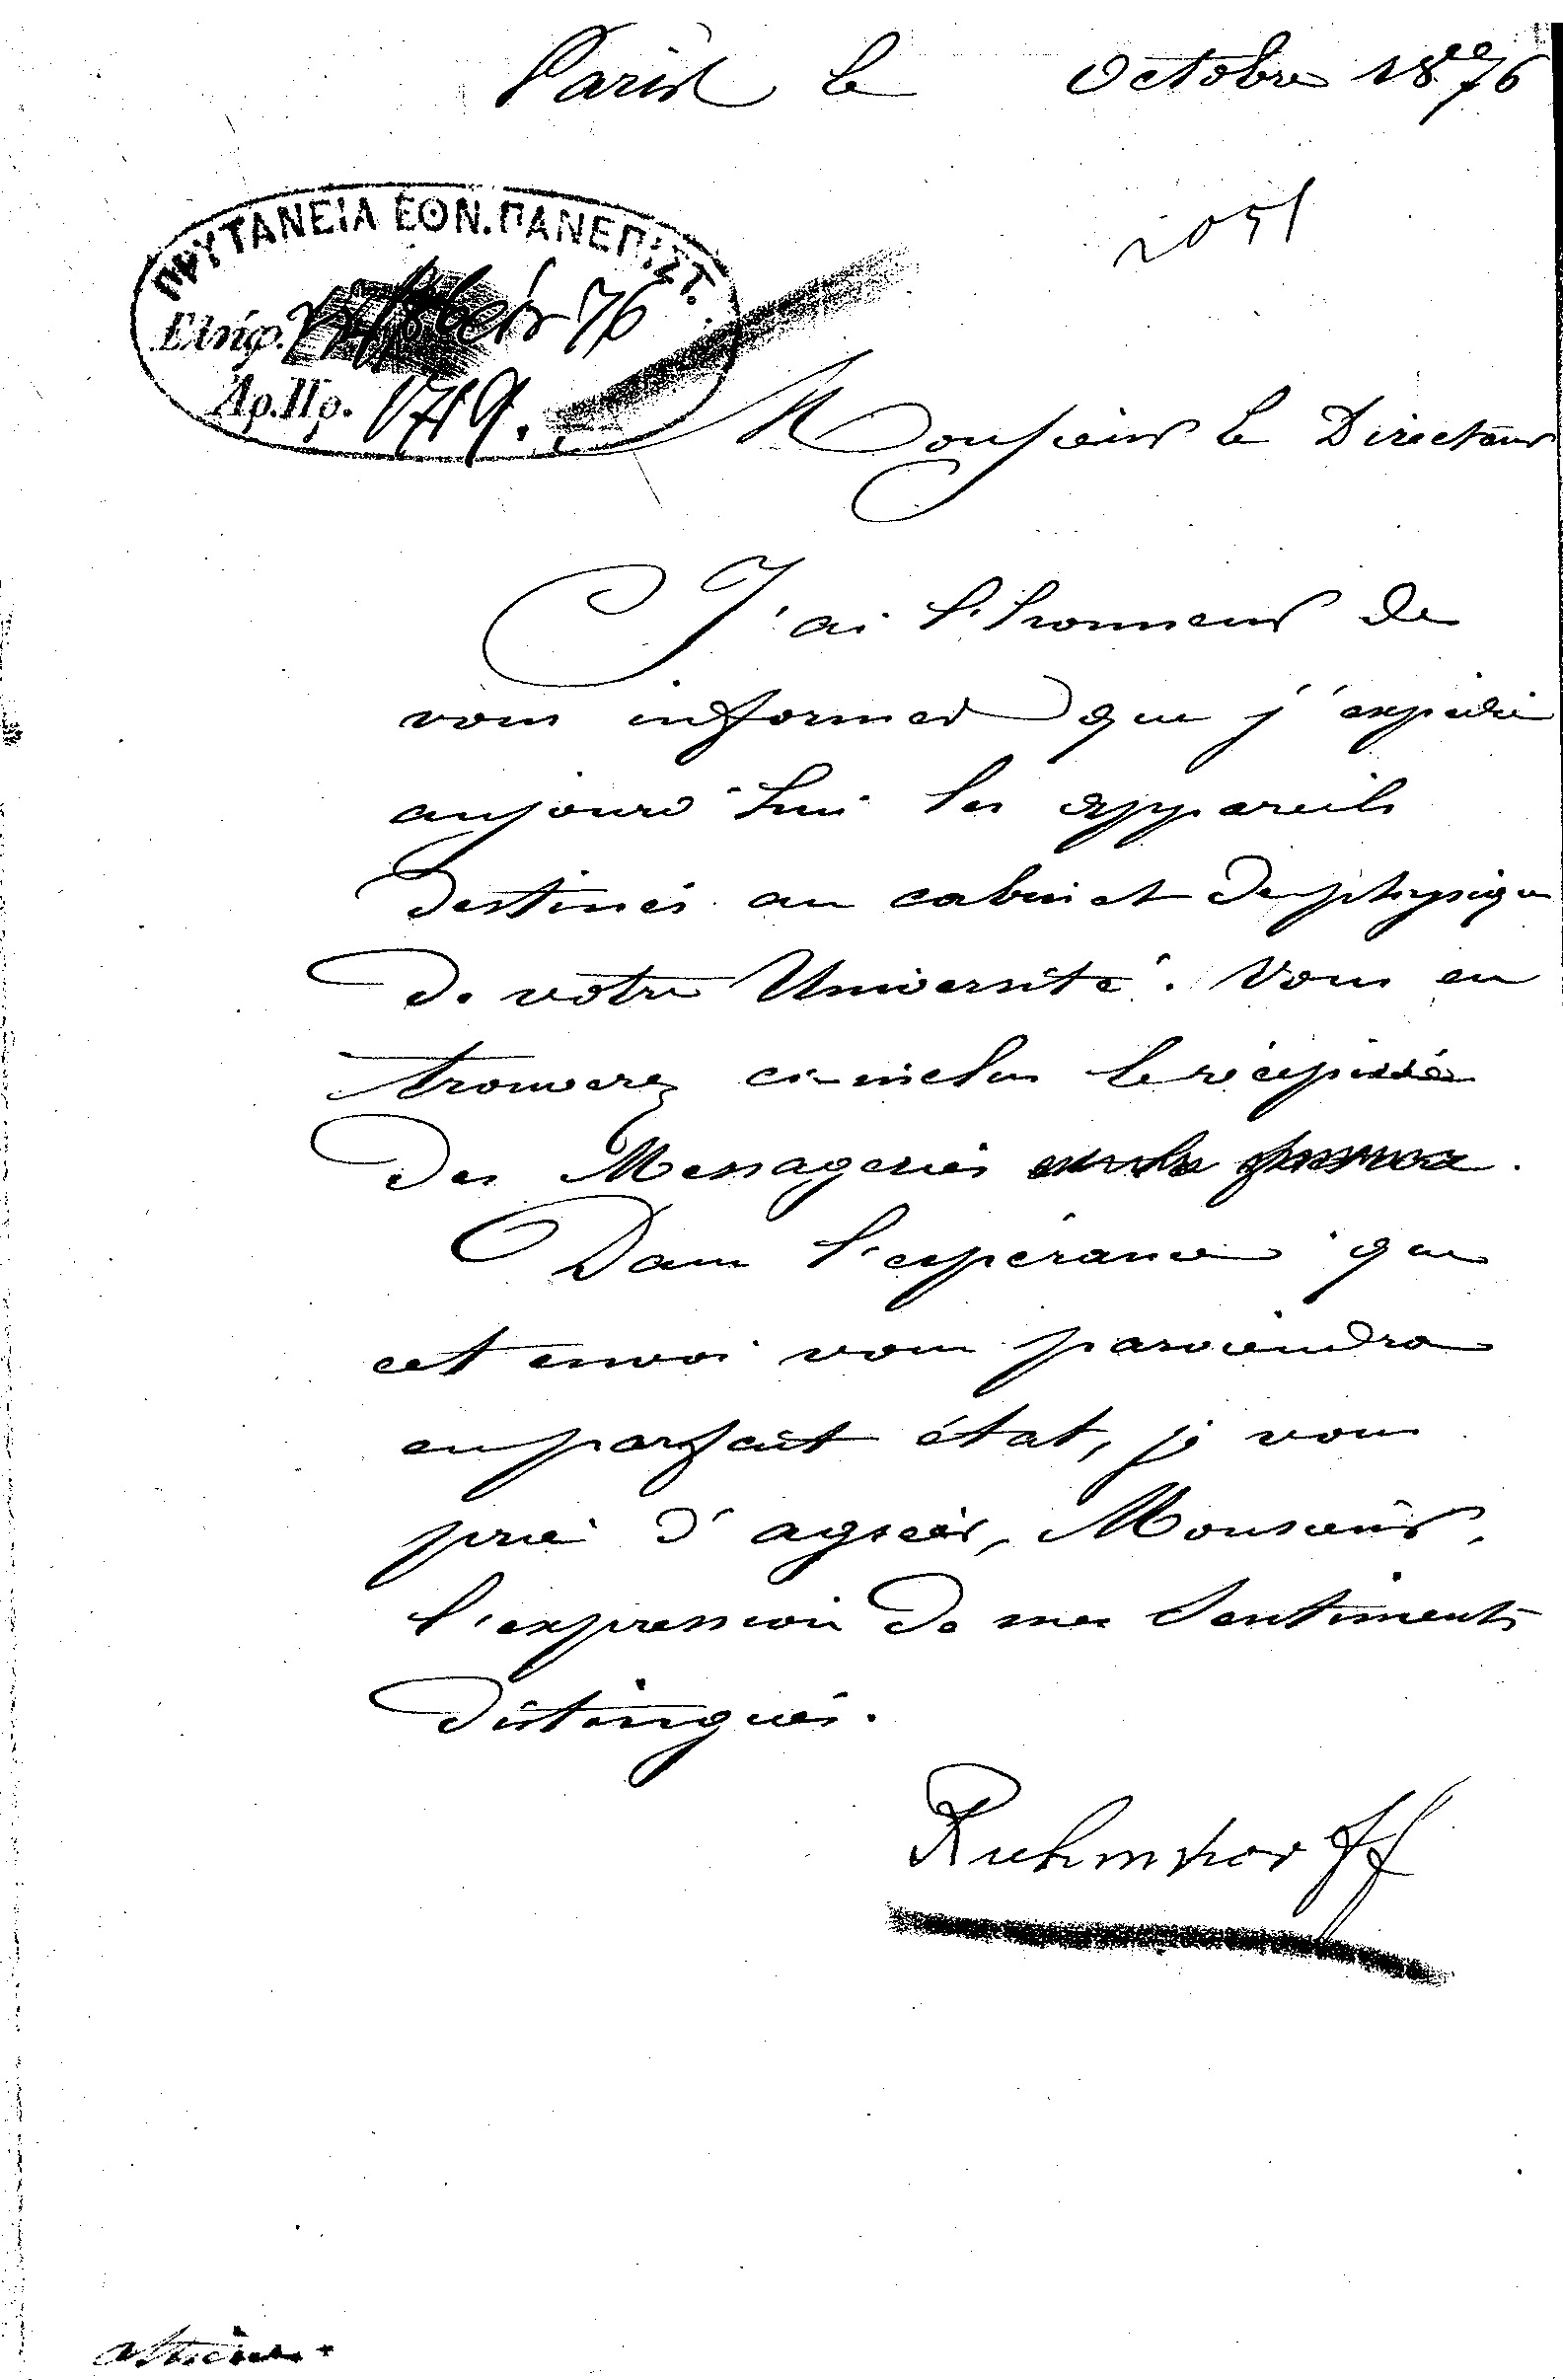 Paris le Octobre 1876
2051
ΠΡΥΤΑΝΕΙΑ ΕΘΝ. ΠΑΝΕΠΙΣΤ.
Ελήφ. 76
Αρ.Πρ. 1719.
Monsieur le Directeur
J'ai l'honneur de
vous informer que j'expédie
aujourd'hui les appareils
destinés au cabinet de physique
de votre Université. Vous en
trouverez ci-inclus le récépissé
des Messageries
Dans l'espérance que
cet envoi vous parviendra
en parfait état, je vous
prie d'agréer, Monsieur,
l'expression de mes Sentiments
distingués.
Ruhmkorff